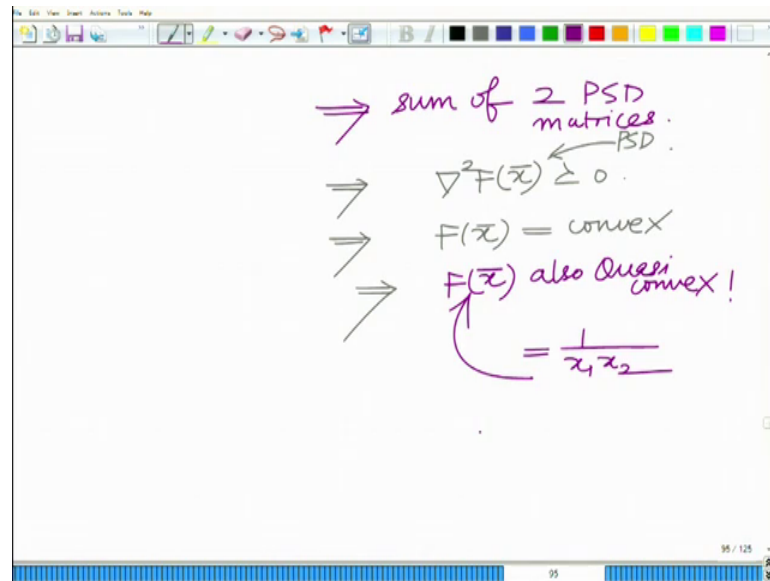 File Edit View Insert Actions Tools Help
B I
⇒ sum of 2 PSD
matrices.
PSD.
⇒ ∇²F(x̄) ≥ 0.
⇒ F(x̄) = convex
⇒ F(x̄) also Quasi
convex!
= 1/(x₁x₂)
95 / 125
95